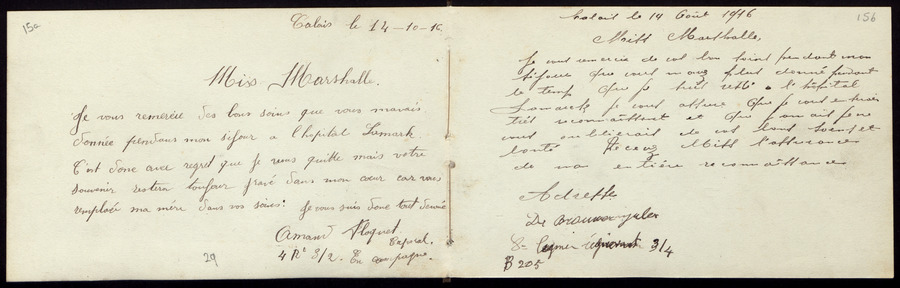 15a
Calais le 14-10-16
Miss Marshalle.
Je vous remercie des bons soins que vous mavais
donnée pendans mon séjour a l'hopital Lamark.
C'est donc avec regret que je vous quitte mais votre
souvenir restera toujour gravé dans mon cœur car vous
remplacée ma mère dans vos soins: Je vous suis donc tout
Amand Ploquet
Caporal.
4 Rt 3/2. En campagne.
29
15b
Calais le 14 Oout 1916
Miss Marshalle,
Je vous remercie de vos bon soins pendant mon
séjour que vous m avez donné pendant
le temp que je suis resté a l'hôpital
Lamarck je vous assure que je vous en suis
très reconnaissant et que jamais je ne
vous oublierait de vos bons soins et
bonté Recevez Miss l'assurance
de mon entière reconnaissance
Adresse
De
3/4
B 205